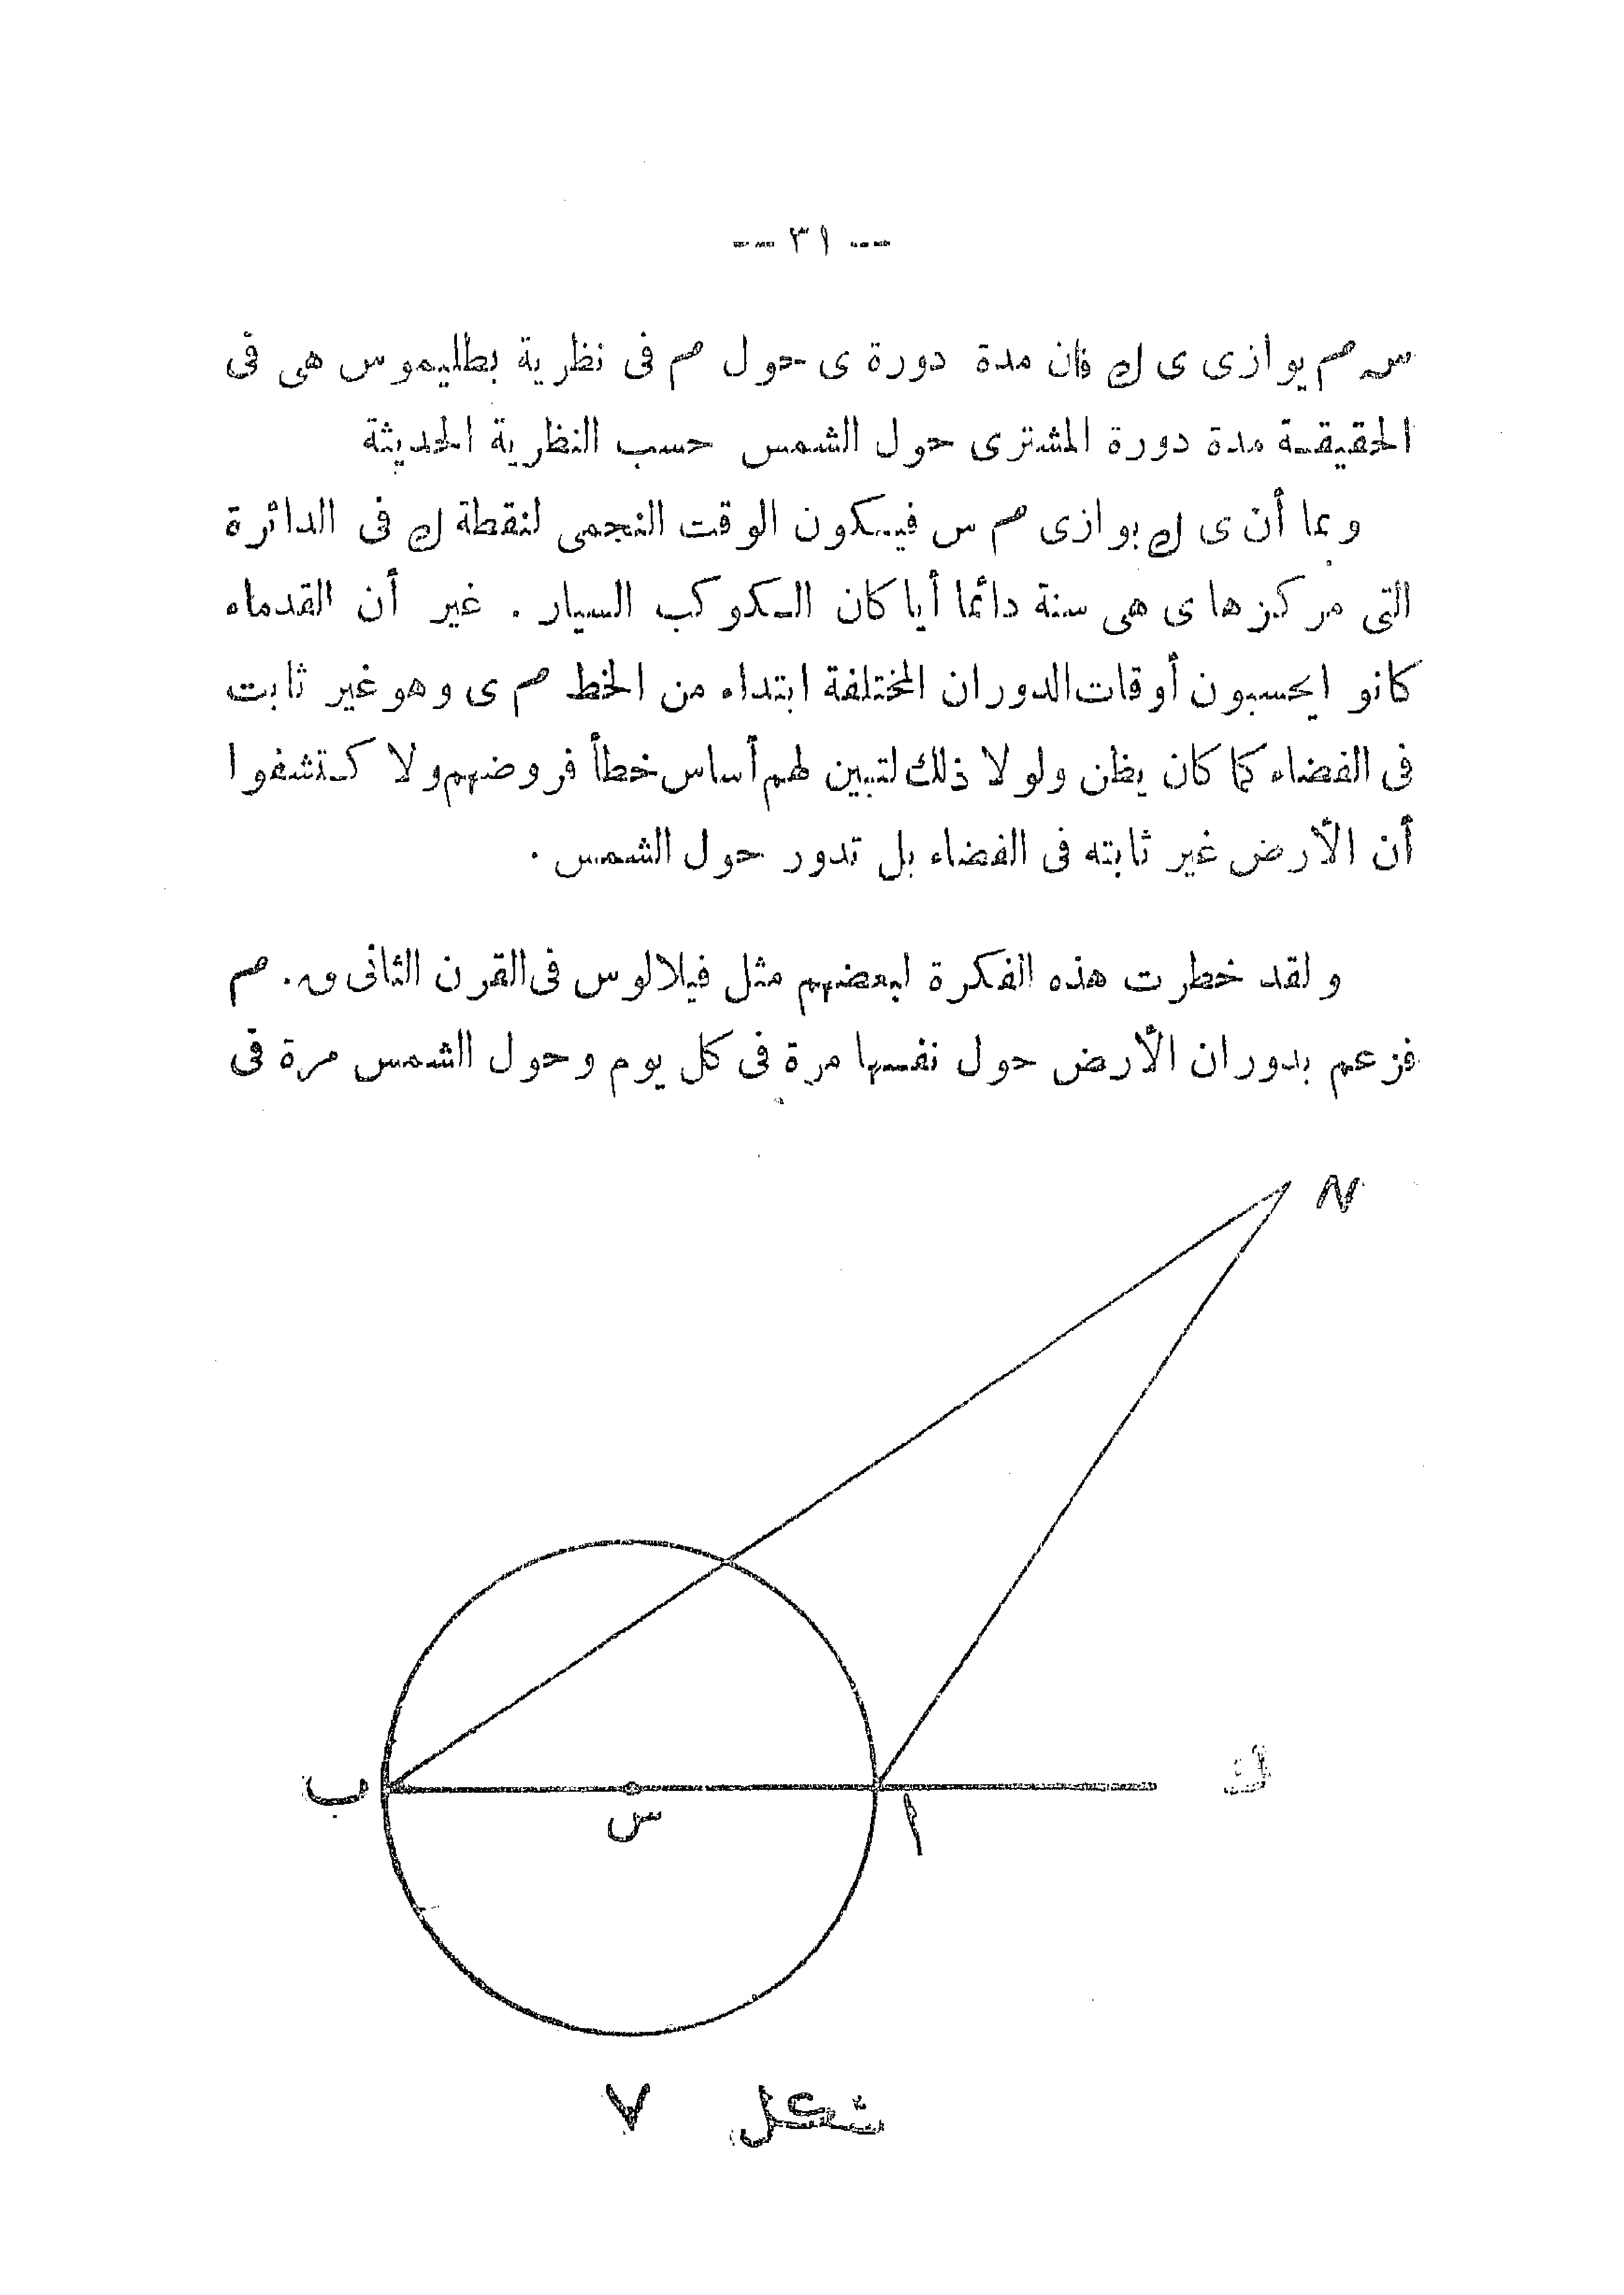 -- ٣١ --
س م يوازى ى ك فان مدة دورة ى حول م فى نظرية بطليموس هى فى
الحقيقة مدة دورة المشترى حول الشمس حسب النظرية الحديثة
وبما أن ى ك يوازى م س فيكون الوقت النجمى لنقطة ك فى الدائرة
التى مركزها ى هى سنة دائما أيا كان الكوكب السيار . غير أن القدماء
كانو ايحسبون أوقات الدوران المختلفة ابتداء من الخط م ى وهو غير ثابت
فى الفضاء كما كان يظن ولولا ذلك لتبين لهم أساس خطأ فروضهم ولا كتشفوا
أن الأرض غير ثابته فى الفضاء بل تدور حول الشمس .
ولقد خطرت هذه الفكرة لبعضهم مثل فيلالوس فى القرن الثانى ق. م
فزعم بدوران الأرض حول نفسها مرة فى كل يوم وحول الشمس مرة فى
N
ب
س
ا
ك
شكل ٧